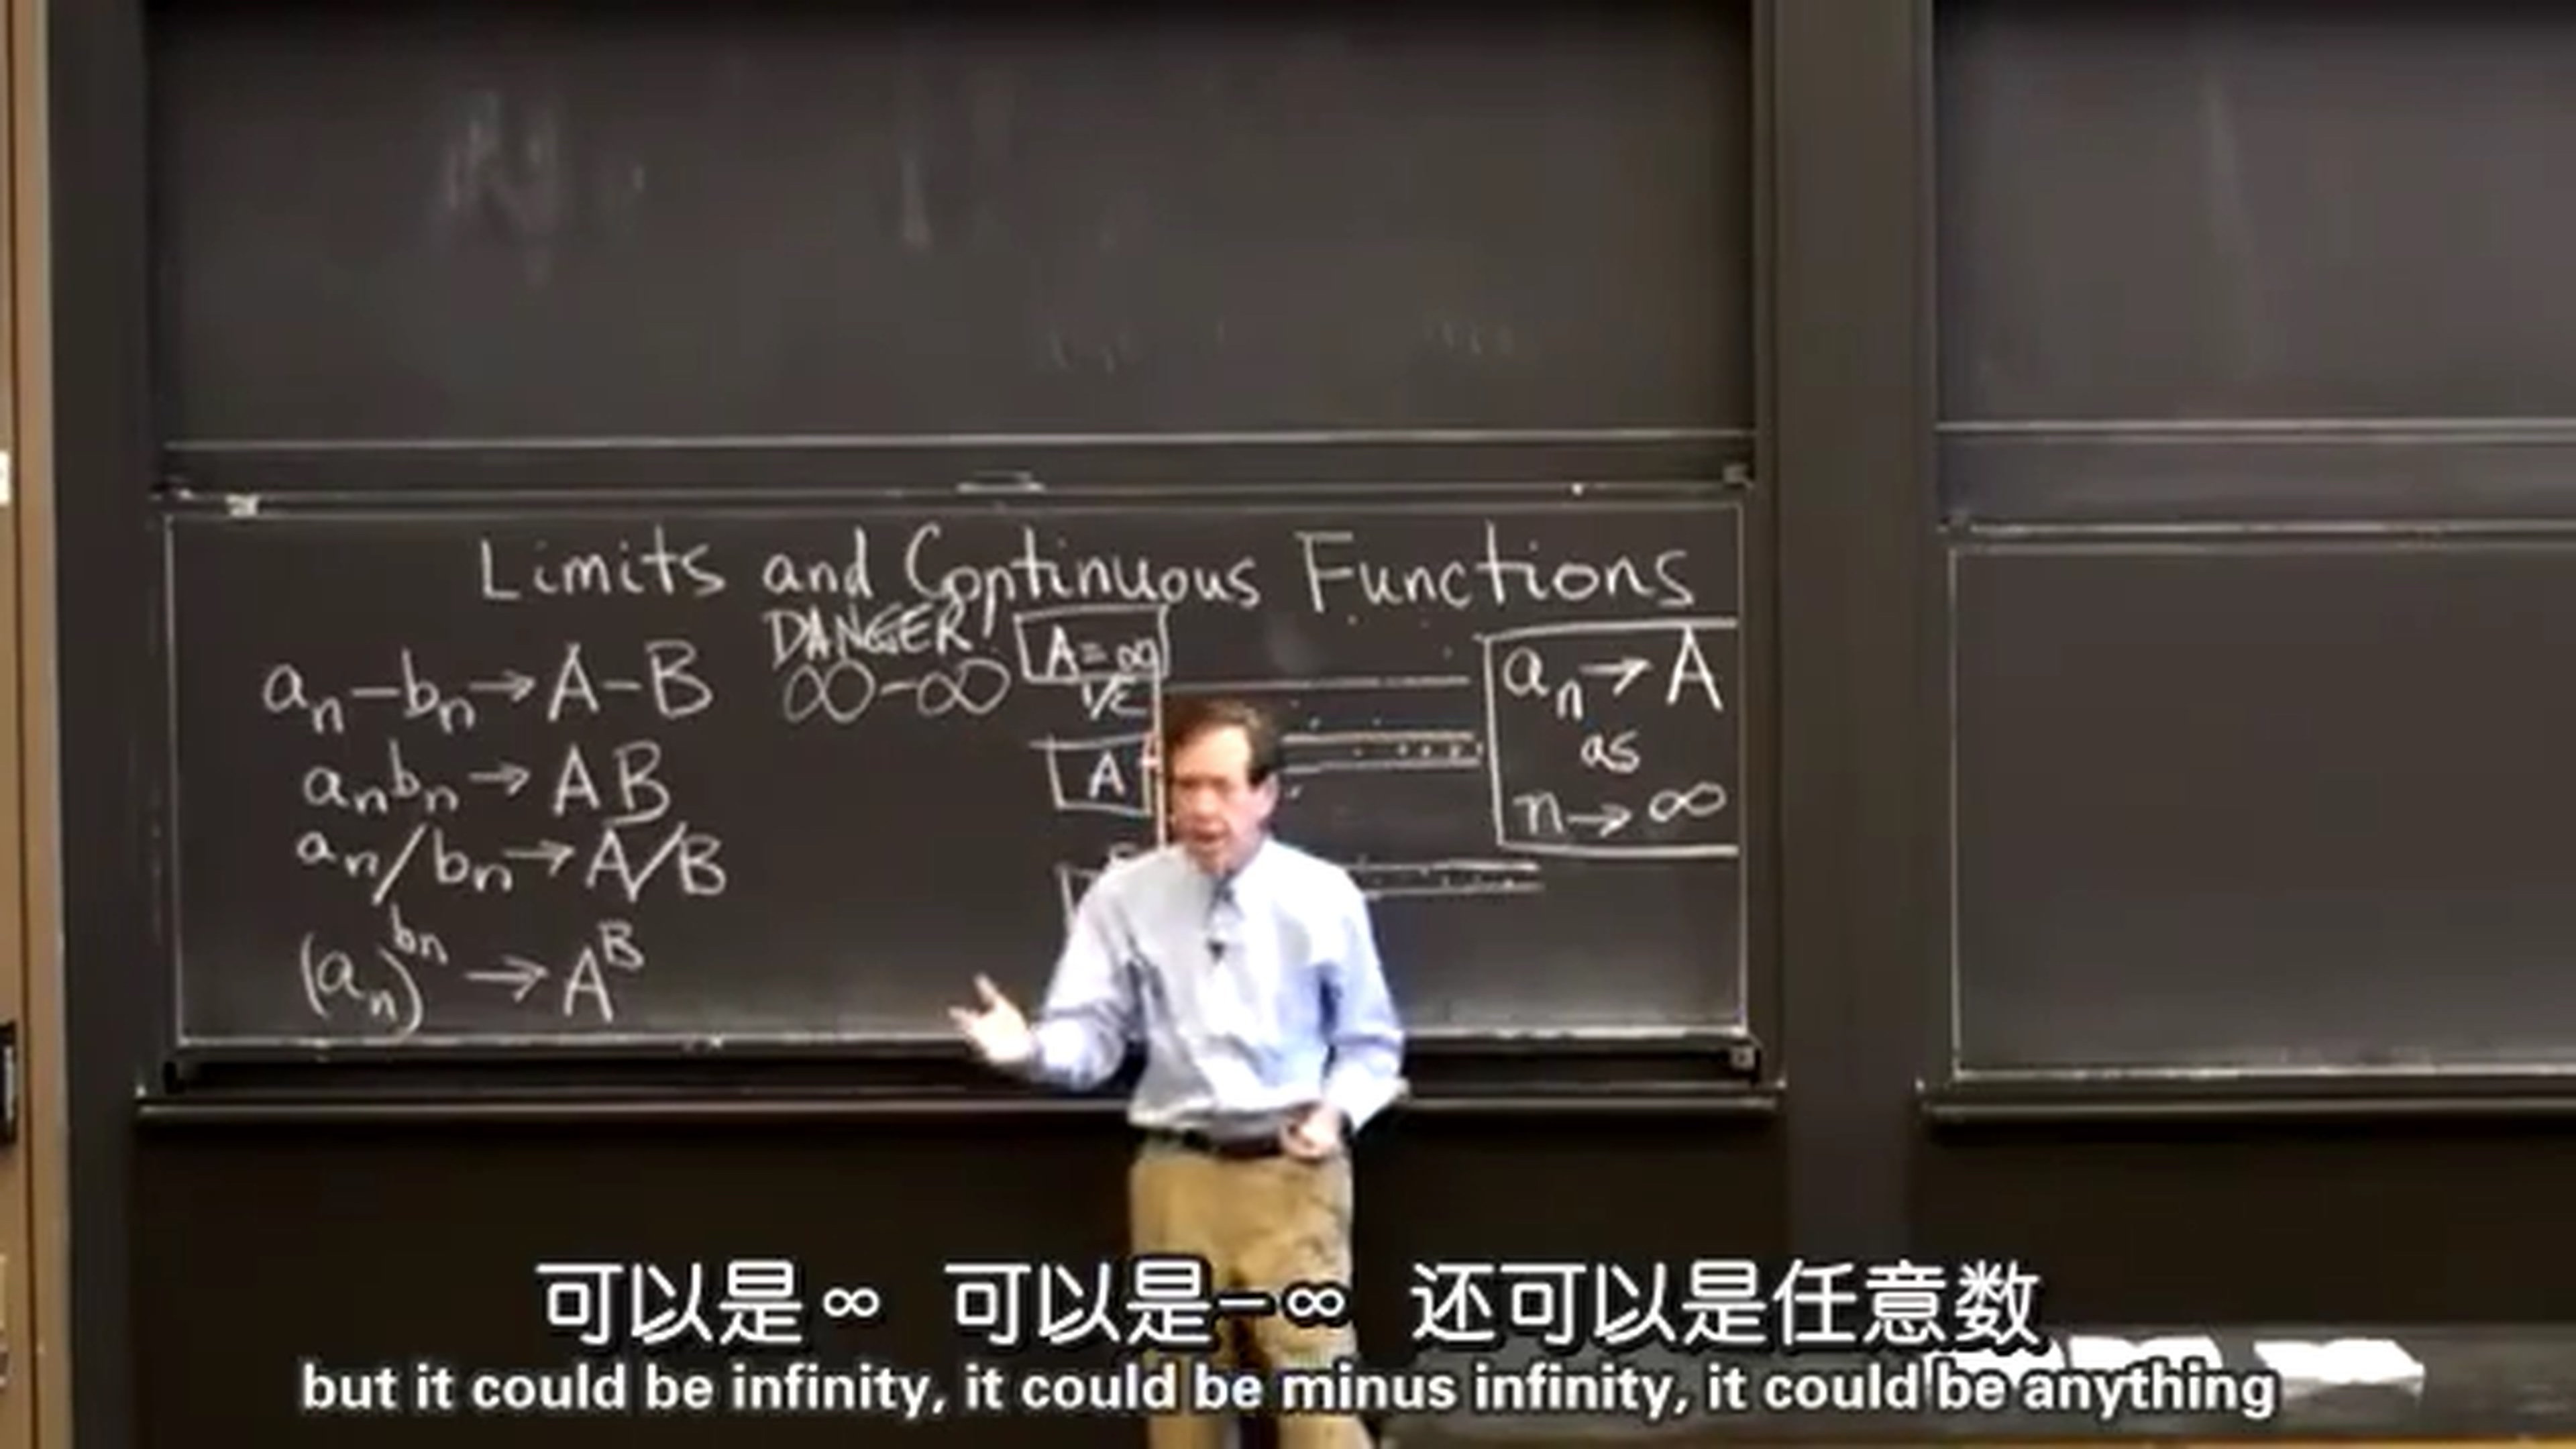 Limits and Continuous Functions
DANGER!
aₙ−bₙ→A−B
∞−∞
A=∞
aₙbₙ→AB
A
aₙ/bₙ→A/B
(aₙ)^bₙ→A^B
aₙ→A
as
n→∞
可以是∞ 可以是−∞ 还可以是任意数
but it could be infinity, it could be minus infinity, it could be anything